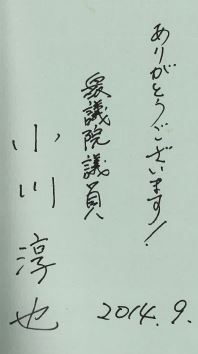 ありがとうございます！
衆議院議員
小川淳也
2014.9.